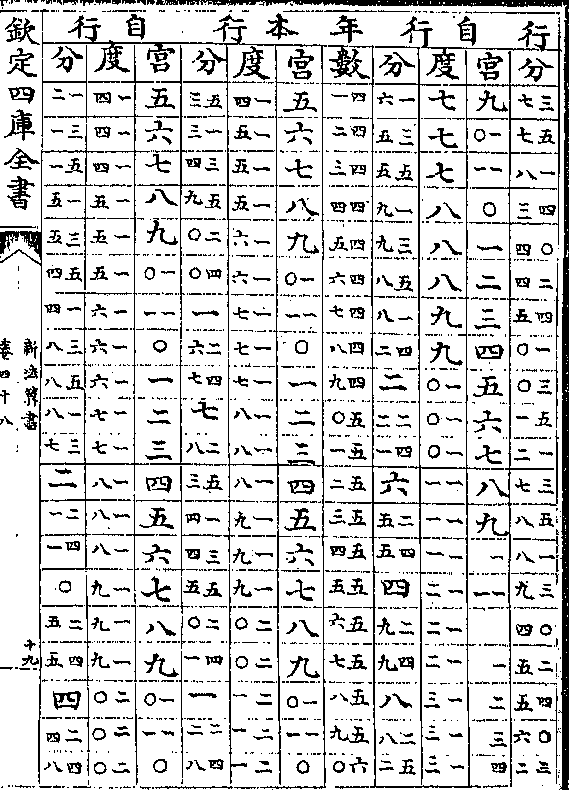 行 自行 年 本行 自行
分 三七 五七 一八 四三 〇四 二四 四五 一〇 三〇 五一 一二 三七 五八 一八 三九 〇四 二五 四五 〇六 二三
宮 九 一〇 一一 〇 一 二 三 四 五 六 七 八 九 一 一一 一 二 三 四
度 七 七 七 八 八 八 九 九 一〇 一〇 一〇 一一 一一 一一 一二 一二 一二 一三 一三 一三
分 一六 三五 五五 一九 三九 五八 一八 四二 二 二二 四一 六 二五 四五 四 二九 四九 八 二八 五二
數 四一 四二 四三 四四 四五 四六 四七 四八 四九 五〇 五一 五二 五三 五四 五五 五六 五七 五八 五九 六〇
宮 五 六 七 八 九 一〇 一一 〇 一 二 三 四 五 六 七 八 九 一〇 一一 〇
度 一四 一五 一五 一五 一六 一六 一七 一七 一七 一八 一八 一八 一九 一九 一九 二〇 二〇 二一 二一 二一
分 五三 一三 三四 五九 二〇 四〇 一 二六 四七 七 二八 五三 一四 三四 五五 二〇 四一 一 二二 四八
宮 五 六 七 八 九 一〇 一一 〇 一 二 三 四 五 六 七 八 九 一〇 一一 〇
度 一四 一四 一四 一五 一五 一五 一六 一六 一六 一七 一七 一八 一八 一八 一九 一九 一九 二〇 二〇 二〇
分 一二 三一 五一 一五 三五 五四 一四 三八 五八 一八 三七 二 二一 四一 〇 二五 四五 四 二四 四八
欽定四庫全書
新法算書
卷四十八
十九